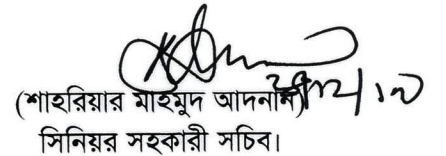 (শাহরিয়ার মাহমুদ আদনান)
সিনিয়র সহকারী সচিব।